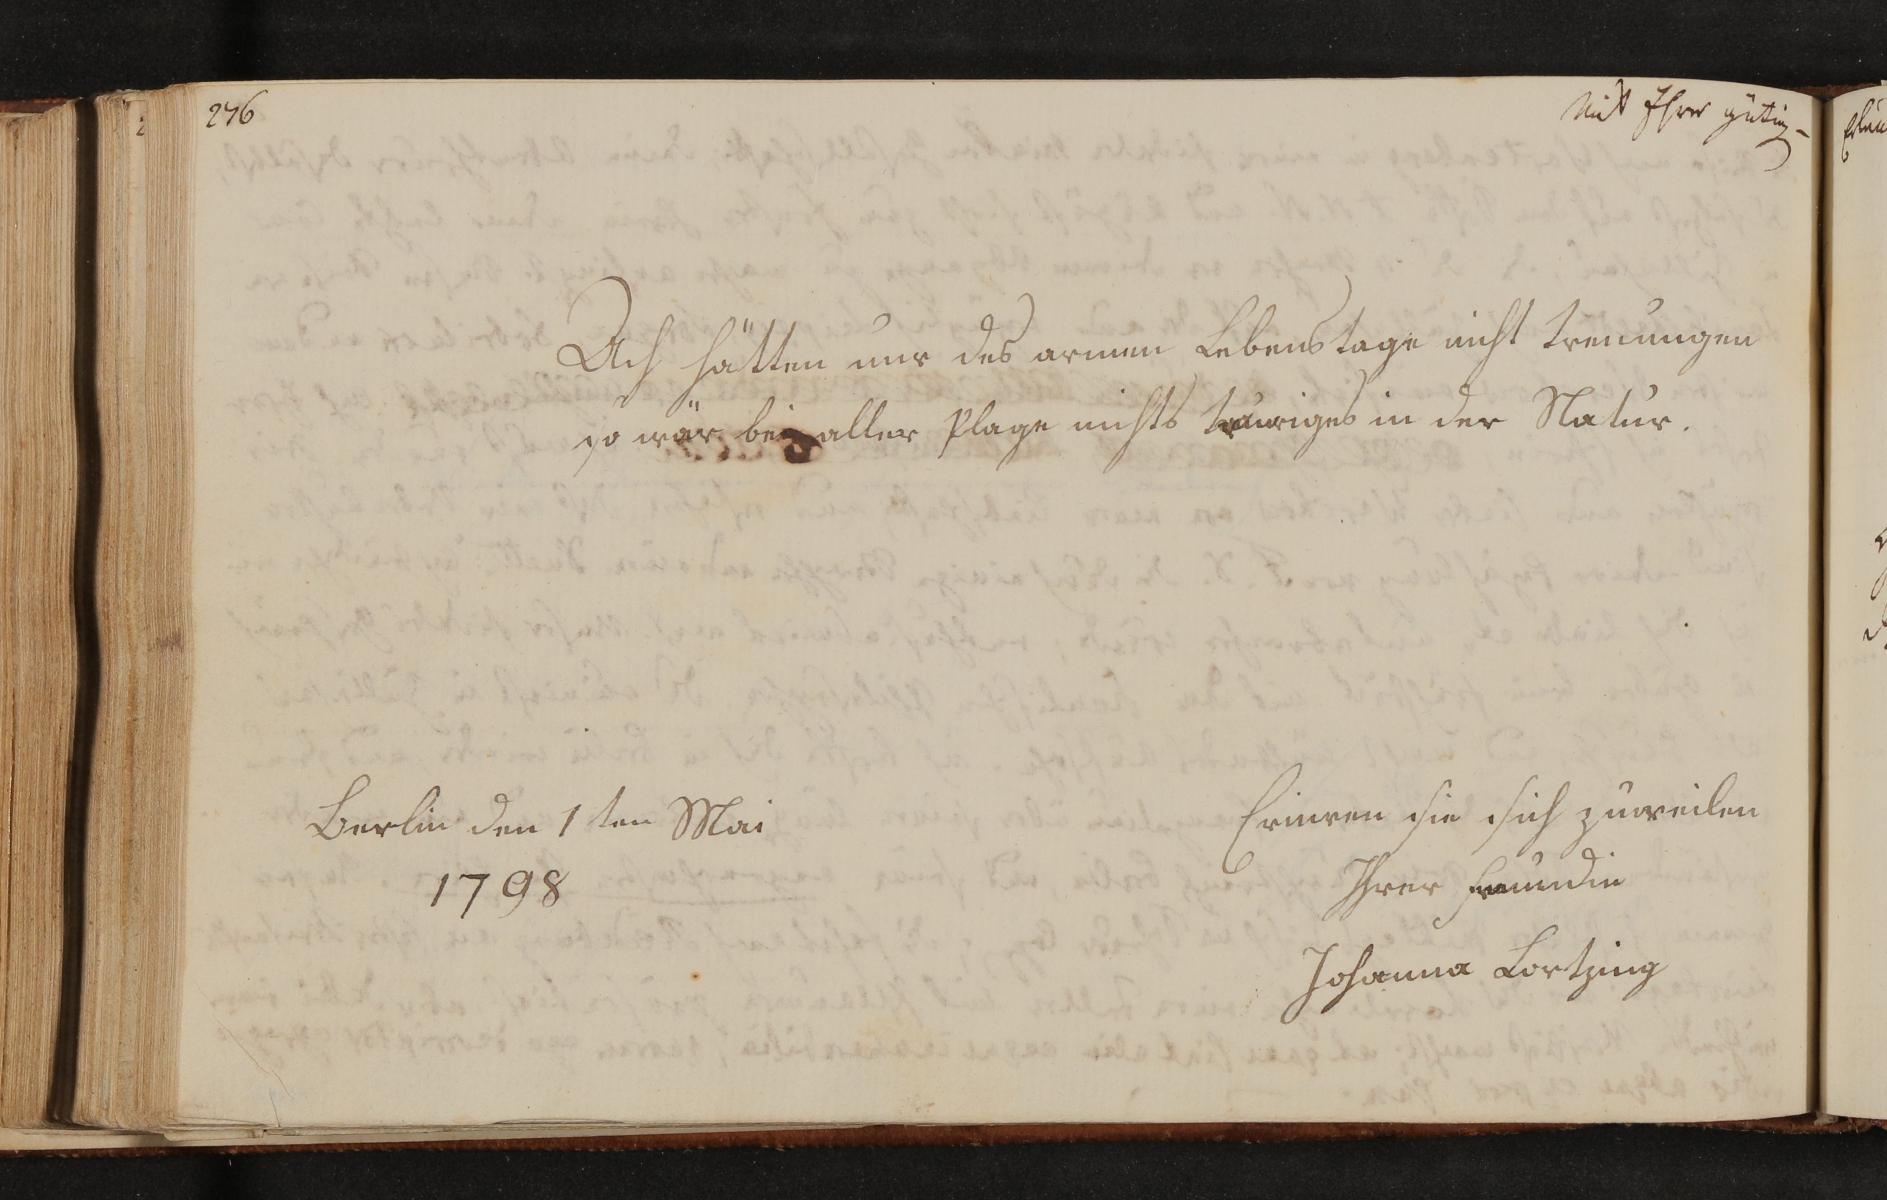 276
Mit Ihrer gütig-
Ach hätten nur des armen Lebenstage nicht trenungen
so wär bei aller Plage nichts trauriges in der Natur.
Berlin den 1 ten Mai
1798
Erinren sie sich zuweilen
Ihrer Freundin
Johanna Lortzing